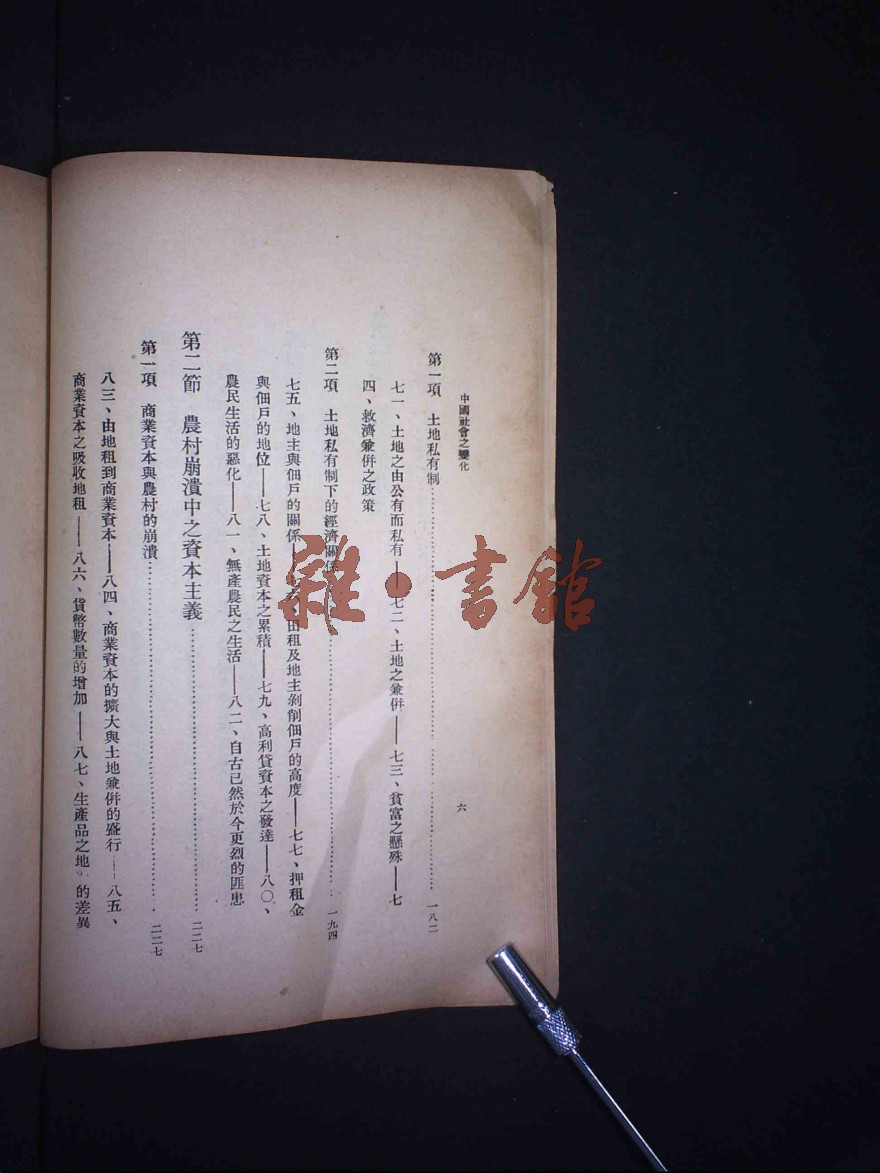 中國社會之變化
六
第一項 土地私有制 一八二
七一、土地之由公有而私有——七二、土地之兼併——七三、貧富之懸殊——七
四、救濟兼併之政策
第二項 土地私有制下的經濟關係 一九四
七五、地主與佃戶的關係 田租及地主剝削佃戶的高度——七七、押租金
與佃戶的地位——七八、土地資本之累積——七九、高利貸資本之發達——八〇、
農民生活的惡化——八一、無產農民之生活——八二、自古已然於今更烈的匪患
第二節 農村崩潰中之資本主義 二二七
第一項 商業資本與農村的崩潰 二二七
八三、由地租到商業資本——八四、商業資本的擴大與土地兼併的盛行——八五、
商業資本之吸收地租——八六、貨幣數量的增加——八七、生產品之地 的差異
雜·書館